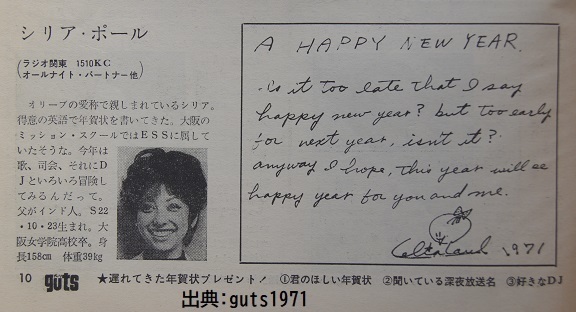 シリア・ポール
(ラジオ関東 1510KC
オールナイト・パートナー他)
オリーブの愛称で親しまれているシリア。
得意の英語で年賀状を書いてきた。大阪の
ミッション・スクールではESSに属して
いたそうな。今年は
歌、司会、それにD
Jといろいろ冒険し
てみるんだって。
父がインド人。S22
・10・23生まれ。大
阪女学院高校卒。身
長158cm 体重39kg
A HAPPY NEW YEAR.
is it too late that I say
happy new year? but too early
for next year, isn't it?
anyway I hope, this year will be
happy year for you and me.
1971
10 guts ★遅れてきた年賀状プレゼント! ①君のほしい年賀状 ②聞いている深夜放送名 ③好きなDJ
出典:guts1971